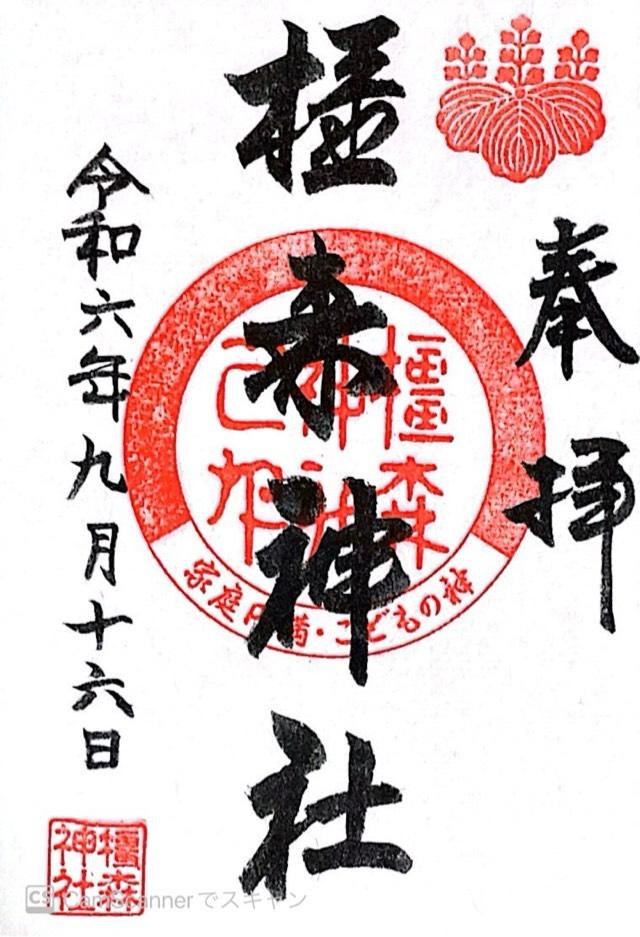 奉拝
橿森神社
橿森
神社
之印
家庭円満・こどもの神
令和六年九月十六日
橿森
神社
CS CamScannerでスキャン